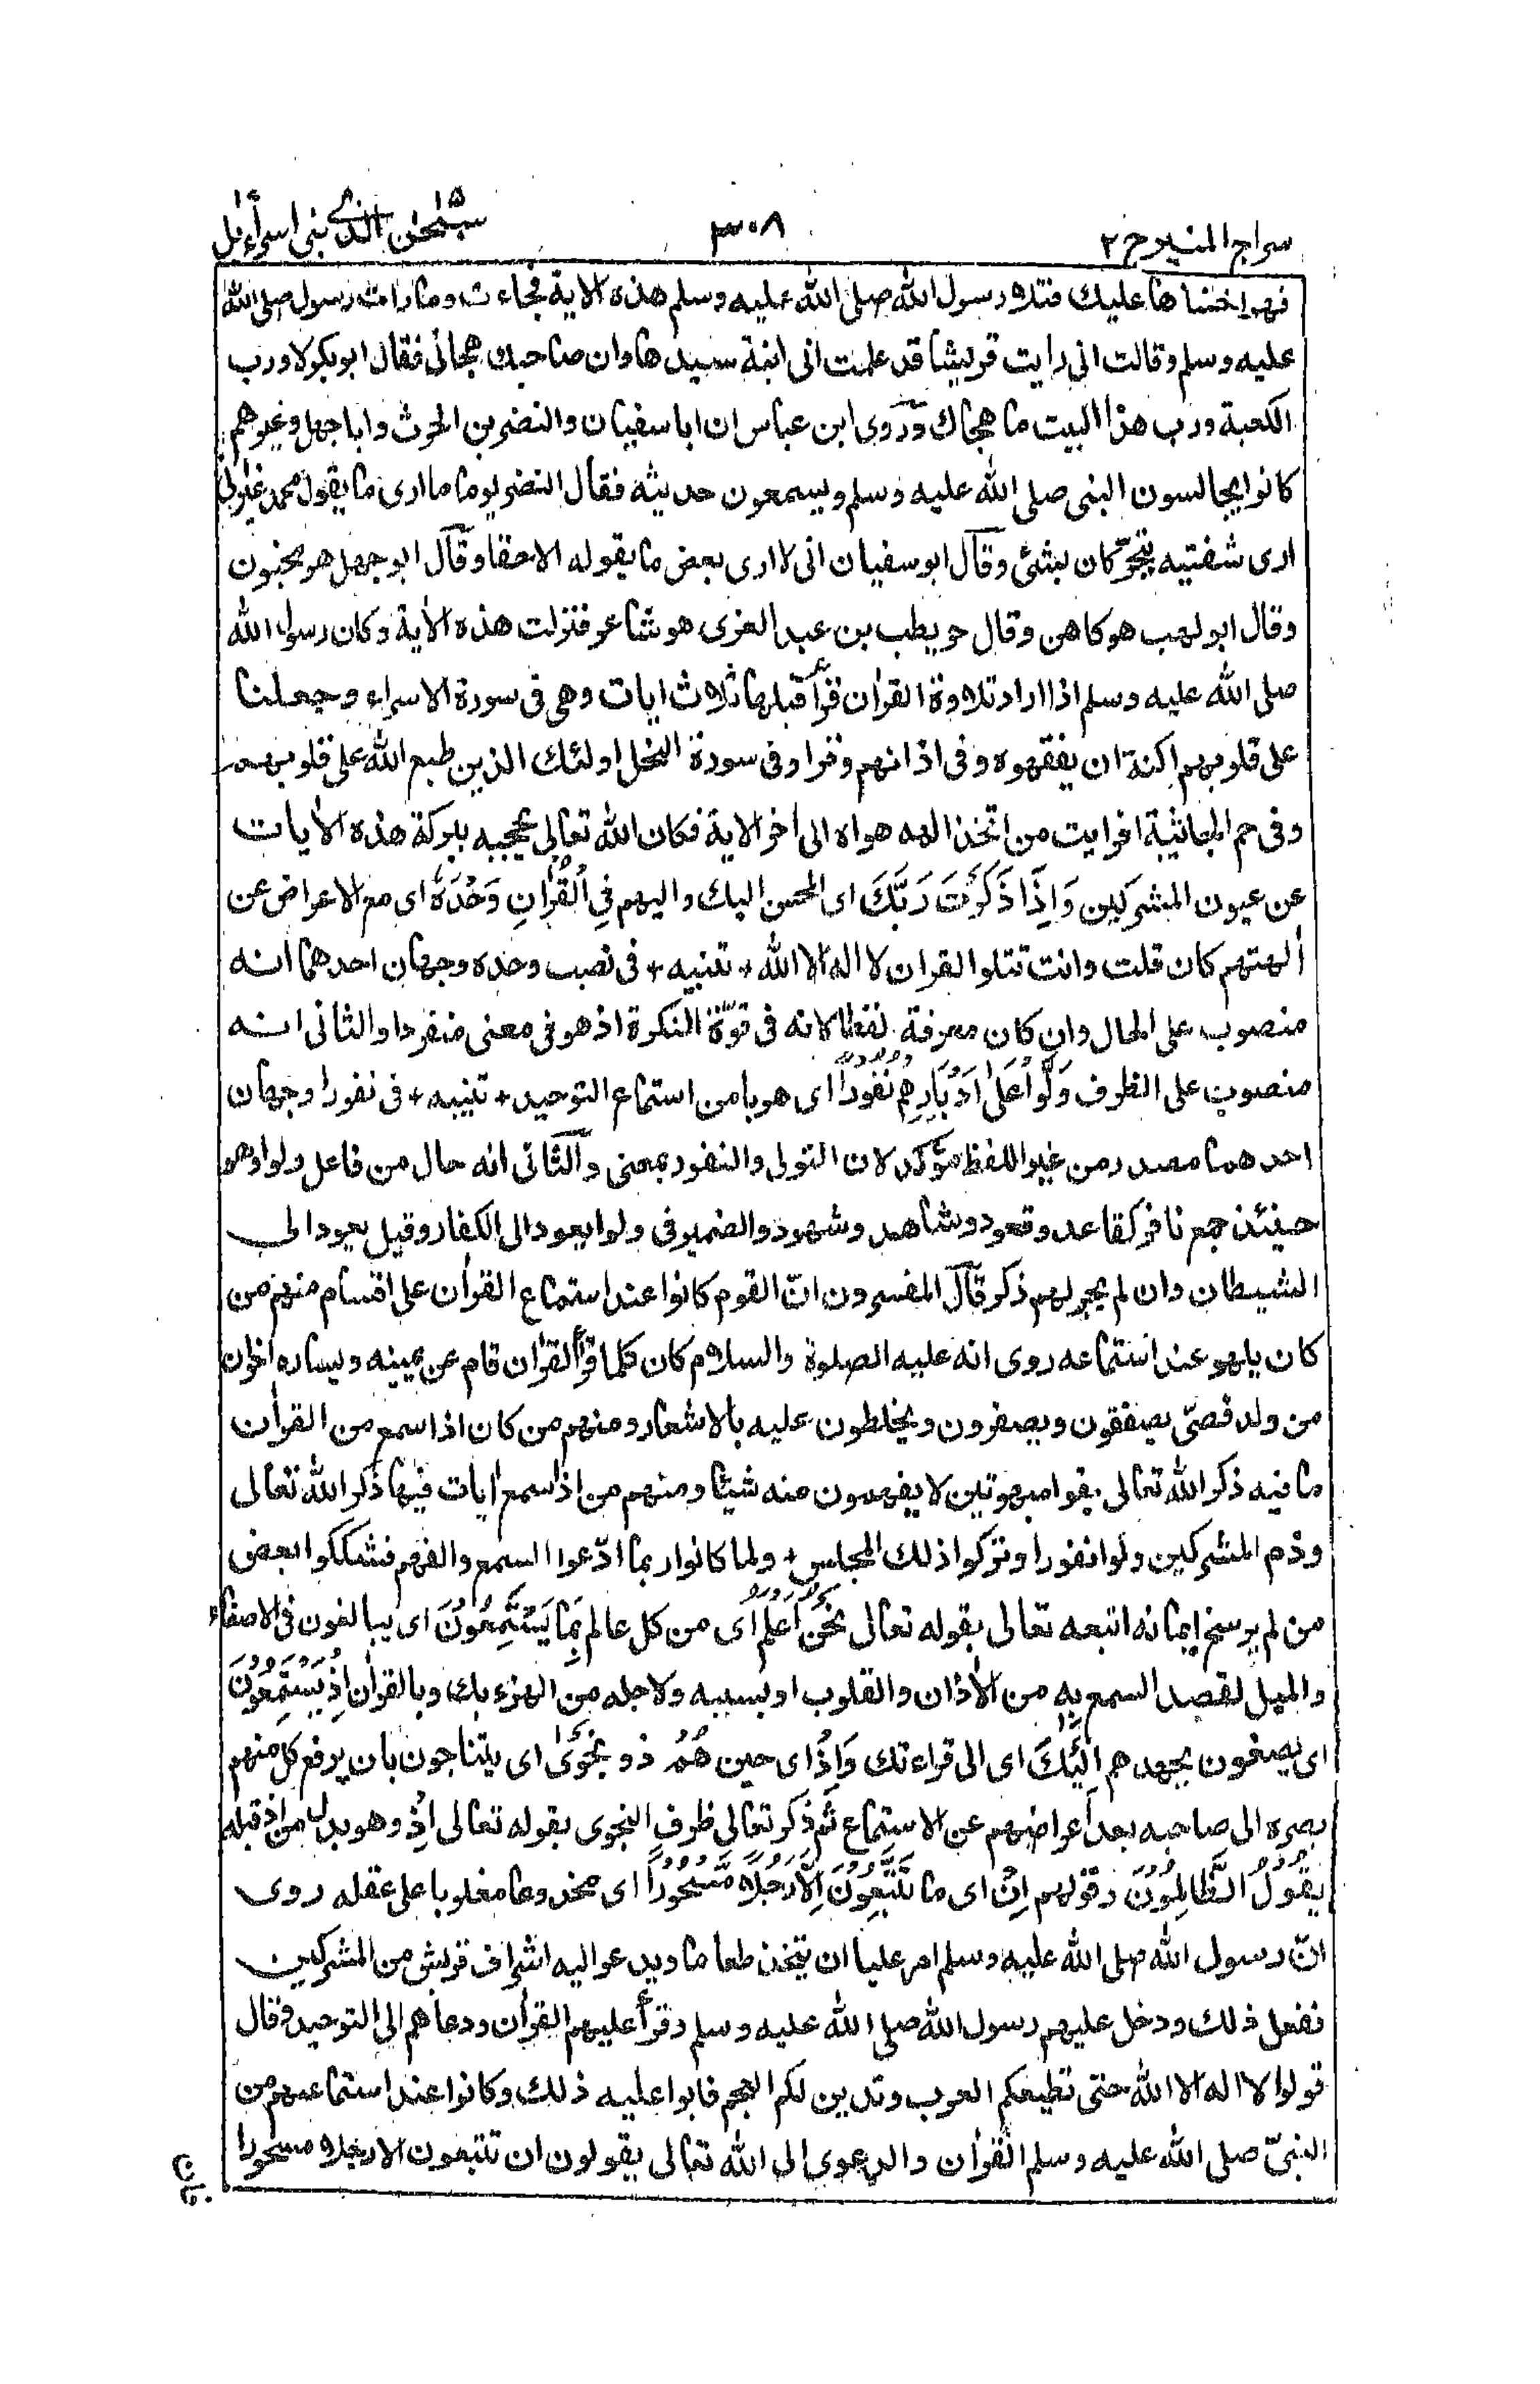 سراج المنير ج ٢
٣٠٨
سبحٰن الذی ١٥ بنی اسرآءيل
فهو اخشاها عليك فتلا رسول الله صلى الله عليه وسلم هذه الاية فجاءت وما رات رسول صلى الله
عليه وسلم وقالت انى رايت قريشا قد علمت انى ابنة سيدها وان صاحبك هجانى فقال ابوبكر لا ورب
الكعبة ورب هذا البيت ما هجاك وروى ابن عباس ان اباسفيان والنضر بن الحرث واباجهل وغيرهم
كانوا يجالسون النبى صلى الله عليه وسلم ويسمعون حديثه فقال النضر يوما ما ارى ما يقول محمد غير انى
ارى شفتيه تتحركان بشئ وقال ابوسفيان انى لا ارى بعض ما يقوله الاحقا وقال ابوجهل هو مجنون
وقال ابولهب هو كاهن وقال حويطب بن عبد العزى هو شاعر فنزلت هذه الاٰية وكان رسول الله
صلى الله عليه وسلم اذا اراد تلاوة القراٰن قرأ قبلها ثلاث ايات وهى فى سورة الاسراء وجعلنا
على قلوبهم اكنة ان يفقهوه وفى اذانهم وقرا وفى سورة النحل اولئك الذين طبع الله على قلوبهم
وفى حم الجاثية افرايت من اتخذ الهه هواه الى اٰخر الاية فكان الله تعالى يحجبه ببركة هذه الاٰيات
عن عيون المشركين وَاِذَا ذَكَرْتَ رَبَّكَ اى المحسن اليك واليهم فِى الْقُرْاٰنِ وَحْدَهٗ اى مع الاعراض عن
اٰلهتهم كان قلت وانت تتلو القران لا اله الا الله + تنبيه + فى نصب وحده وجهان احدهما انه
منصوب على الحال وان كان معرفة لفظا لانه فى قوّة النكرة اذ هو فى معنى منفردا والثانى انه
منصوب على الظرف وَلَّوْا عَلٰى اَدْبَارِهِمْ نُفُوْرًا اى هربا من استماع التوحيد + تنبيه + فى نفورا وجهان
احدهما مصدر من غير اللفظ مؤكد لان التولى والنفور بمعنى والثانى انه حال من فاعل ولوا وهو
حينئذ جمع نافر كقاعد وقعود وشاهد وشهود والضمير فى ولوا يعود الى الكفار وقيل يعود الى
الشيطان وان لم يجر لهم ذكر قال المفسرون انّ القوم كانوا عند استماع القراٰن على اقسام منهم من
كان يلهو عند استماعه روى انه عليه الصلوة والسلام كان كلما قرأ القراٰن قام عن يمينه ويساره اخوان
من ولد قصىّ يصفقون ويصفرون ويخلطون عليه بالاشعار ومنهم من كان اذا سمع من القراٰن
ما فيه ذكر الله تعالى بقوا مبهوتين لا يفهمون منه شيئا ومنهم من اذا سمع اٰيات فيها ذكر الله تعالى
وذم المشركين ولوا نفورا وتركوا ذلك المجلس + ولما كانوا ربما ادّعوا السمع والفهم فشككوا بعض
من لم يرسخ ايمانه اتبعه تعالى بقوله تعالى نَحْنُ اَعْلَمُ اى من كل عالم بِمَا يَسْتَمِعُوْنَ اى يبالغون فى الاصغاء
والميل لقصد السمع بِهٖ من الاٰذان والقلوب او بسببه ولاجله من الهزء بك وبالقراٰن اِذْ يَسْتَمِعُوْنَ
اى يصغون بجهدهم اِلَيْكَ اى الى قراءتك وَاِذْ اى حين هُمْ ذو نَجْوٰى اى يتناجون بان يرفع كل منهم
بصره الى صاحبه بعد اعراضهم عن الاستماع ثم ذكر تعالى ظرف النجوى بقوله تعالى اِذْ وهو بدل من اذ قبله
يَقُوْلُ الظّٰلِمُوْنَ وقولهم اِنْ اى ما تَتَّبِعُوْنَ اِلَّا رَجُلًا مَّسْحُوْرًا اى مخدوعا مغلوبا على عقله روى
انّ رسول الله صلى الله عليه وسلم امر عليا ان يتخذ طعاما ويدعو اليه اشراف قريش من المشركين
ففعل ذلك ودخل عليهم رسول الله صلى الله عليه وسلم وقرأ عليهم القراٰن ودعاهم الى التوحيد وقال
قولوا لا اله الا الله حتى تطيعكم العرب وتدين لكم العجم فابوا عليه ذلك وكانوا عند استماعهم من
النبىّ صلى الله عليه وسلم القراٰن والدعوى الى الله تعالى يقولون ان تتبعون الا رجلا مسحورا